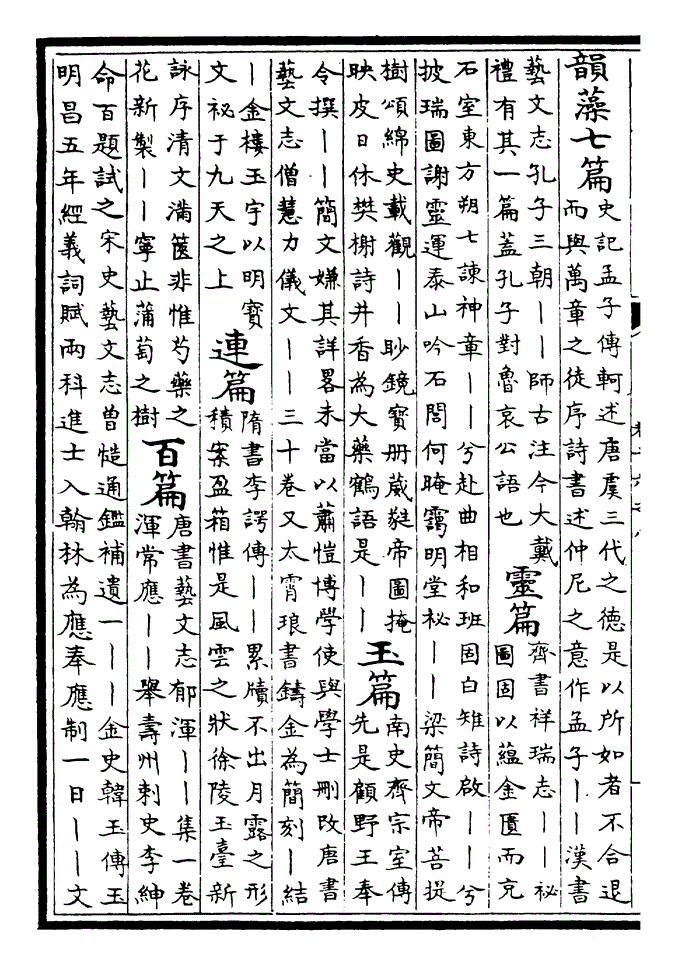 韻藻七篇
史記孟子傳軻述唐虞三代之德是以所如者不合退
而與萬章之徒序詩書述仲尼之意作孟子丨丨漢書
藝文志孔子三朝丨丨師古注今大戴
禮有其一篇蓋孔子對魯哀公語也
靈篇
齊書祥瑞志丨丨祕
圖固以蘊金匱而充
石室東方朔七諫神章丨丨兮赴曲相和班固白雉詩啟丨丨兮
披瑞圖謝靈運泰山吟石閭何晻靄明堂祕丨丨梁簡文帝菩提
樹頌綿史載觀丨丨眇鏡寶册葳蕤帝圖掩
映皮日休樊榭詩井香為大藥鶴語是丨丨
玉篇
南史齊宗室傳
先是顧野王奉
令撰丨丨簡文嫌其詳畧未當以蕭愷博學使與學士刪改唐書
藝文志僧慧力儀文丨丨三十卷又太霄琅書鑄金為簡刻丨結
丨金樓玉宇以明寶
文祕于九天之上
連篇
隋書李諤傳丨丨累牘不出月露之形
積案盈箱惟是風雲之狀徐陵玉臺新
詠序清文滿篋非惟芍藥之
花新製丨丨寧止蒲萄之樹
百篇
唐書藝文志郁渾丨丨集一卷
渾常應丨丨舉壽州刺史李紳
命百題試之宋史藝文志曾慥通鑑補遺一丨丨金史韓玉傳玉
明昌五年經義詞賦兩科進士入翰林為應奉應制一日丨丨文